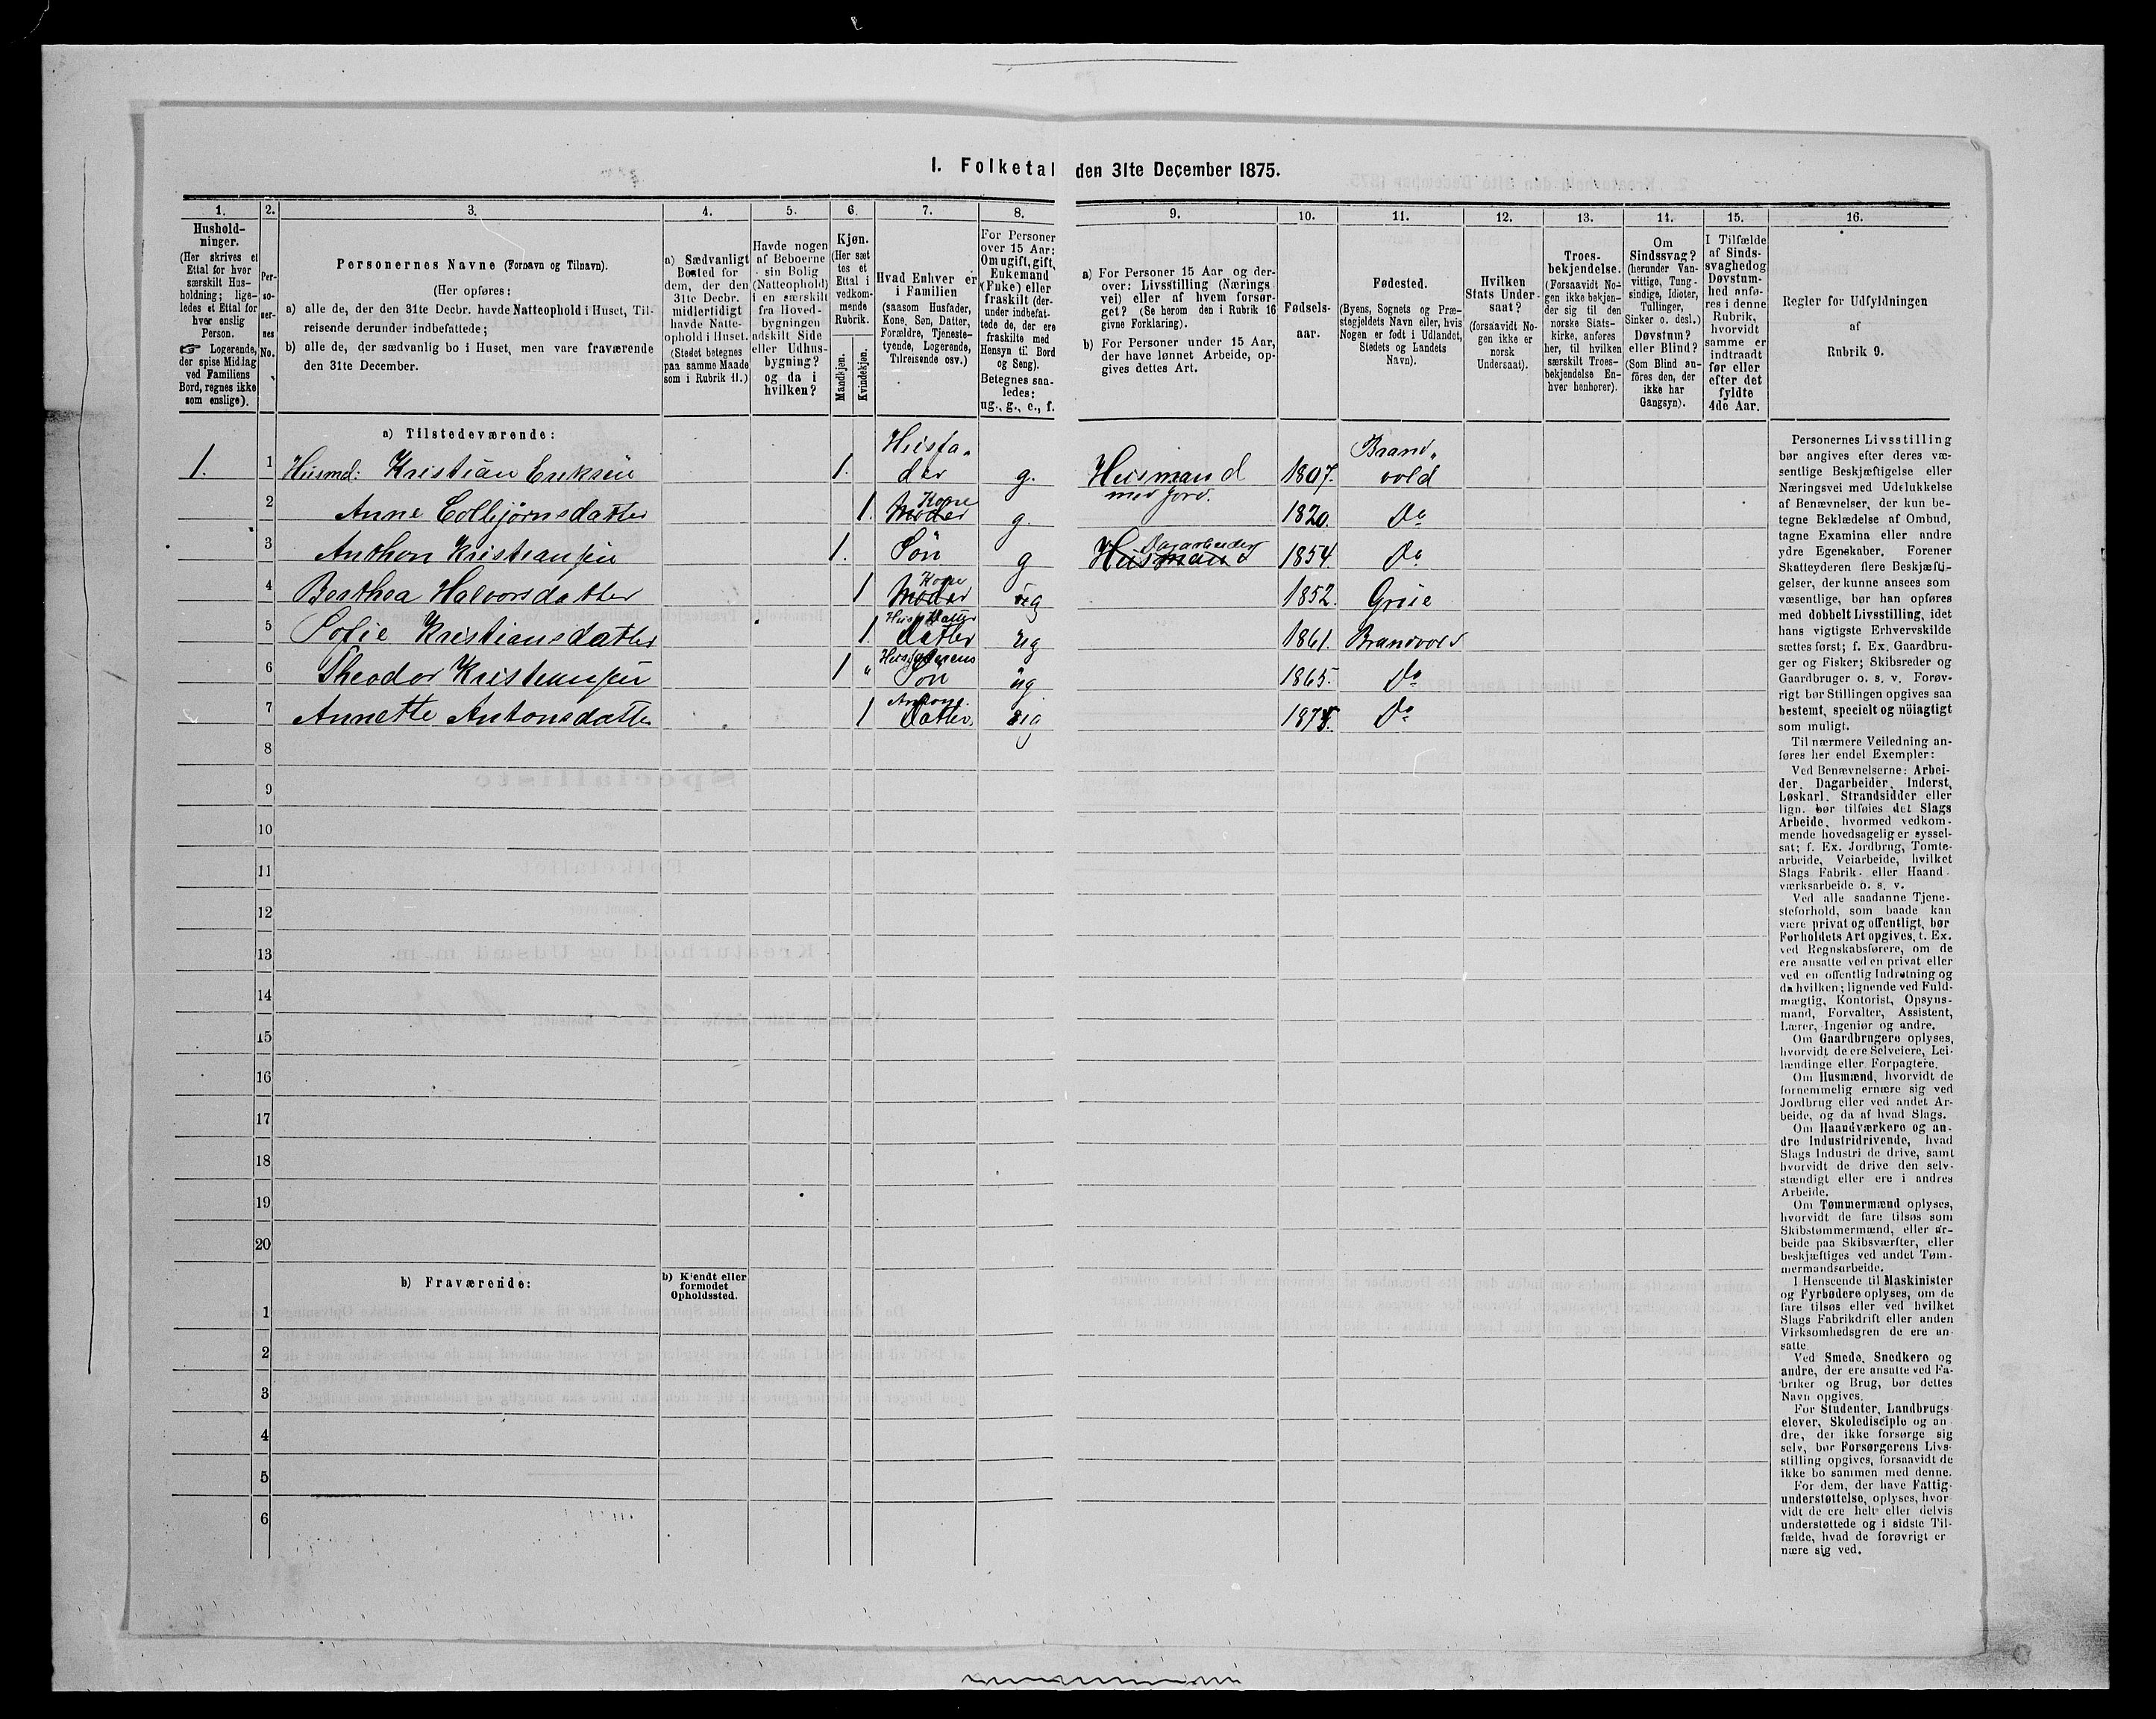 I. Folketal den 31te December 1875.
1. 2. 3. 4. 5. 6. 7. 8. 9. 10. 11. 12. 13. 14. 15. 16.
Hushold-
ninger.
(Her skrives et
Ettal for hver
særskilt Hus-
holdning; lige-
ledes et Ettal for
hver enslig
Person.
☞ Logerende,
der spise Middag
ved Familiens
Bord, regnes ikke
som enslige).
Per-
so-
ner-
nes
No.
Personernes Navne (Fornavn og Tilnavn).
(Her opføres:
a) alle de, der den 31te Decbr. havde Natteophold i Huset, Til-
reisende derunder indbefattede;
b) alle de, der sædvanlig bo i Huset, men vare fraværende
den 31te December.
a) Sædvanligt
Bosted for
dem, der den
31te Decbr.
midlertidigt
havde Natte-
ophold i Huset.
(Stedet betegnes
paa samme Maade
som i Rubrik 11.)
Havde nogen
af Beboerne
sin Bolig
(Natteophold)
i en særskilt
fra Hoved-
bygningen
adskilt Side
eller Udhus-
bygning?
og da i
hvilken?
Kjøn.
(Her sæt
tes et
Ettal i
vedkom-
mende
Rubrik.
Mandkjøn.
Kvindekjøn.
Hvad Enhver er
i Familien
(saasom Husfader,
Kone, Søn, Datter,
Forældre, Tjeneste-
tyende, Logerende,
Tilreisende osv.)
For Personer
over 15 Aar:
Om ugift, gift,
Enkemand
(Enke) eller
fraskilt (der-
under indbefat-
tede de, der ere
fraskilte med
Hensyn til Bord
og Seng).
Betegnes saa-
ledes:
ug., g., e., f.
a) For Personer 15 Aar og der-
over: Livsstilling (Nærings
vei) eller af hvem forsør-
get? (Se herom den i Rubrik 16
givne Forklaring).
b) For Personer under 15 Aar,
der have lønnet Arbeide, op-
gives dettes Art.
Fødsels-
aar.
Fødested.
(Byens, Sognets og Præ-
stegjeldets Navn eller, hvis
Nogen er født i Udlandet,
Stedets og Landets
Navn).
Hvilken
Stats Under-
saat?
(forsaavidt No-
gen ikke er
norsk
Undersaat).
Troes-
bekjendelse.
(Forsaavidt No-
gen ikke bekjen-
der sig til den
norske Stats-
kirke, anføres
her, til hvilken
særskilt Troes-
bekjendelse En-
hver henhører).
Om
Sindssvag?
(herunder Van-
vittige, Tung-
sindige, Idioter,
Tullinger,
Sinker o. desl.)
Døvstum?
eller Blind?
(Som Blind an-
föres den, der
ikke har
Gangsyn).
I Tilfælde
af Sinds-
svaghed og
Døvstum-
hed anfø-
res i denne
Rubrik,
hvorvidt
samme er
indtraadt
før eller
efter det
fyldte
4de Aar.
Regler for Udfyldningen
af
Rubrik 9.
a) Tilstedeværende:
1. 1 Husmd: Kristian Eriksen 1. Husfader g. Husmand med Jord. 1807. Brandvold
2 Anne Colbjørnsdatter 1. Moder Kone g. 1820. Do
3 Anthon Kristiansen 1. Søn g Husmand Dagarbeider 1854. Do
4 Berthea Halvorsdatter 1 Moder Kone ug 1852. Grue
5 Sofie Kristiansdatter 1. Datter ug 1861. Brandvold
6 Theodor Kristiansen 1 " Husfaderens Søn ug 1865. Do
7 Annette Antonsdatter 1 Antons Datter. ug Do
8
9
10
11
12
13
14
15
16
17
18
19
20
b) Fraværende:
b) Kjendt eller
formodet
Opholdssted.
1
2
3
4
5
6
Personernes Livsstilling
bør angives efter deres væ-
sentlige Beskjæftigelse eller
Næringsvei med Udelukkelse
af Benævnelser, der kun be-
tegne Beklædelse af Ombud,
tagne Examina eller andre
ydre Egenskaber. Forener
Skatteyderen flere Beskjæfti-
gelser, der kunne ansees som
væsentlige, bør han opføres
med dobbelt Livsstilling, idet
hans vigtigste Erhvervskilde
sættes først; f. Ex. Gaardbru-
ger og Fisker; Skibsreder og
Gaardbruger o. s. v. Forøv-
rigt bør Stillingen opgives saa
bestemt, specielt og nöiagtigt
som muligt.
Til nærmere Veiledning an-
føres her endel Exempler:
Ved Benævnelserne: Arbei-
der, Dagarbeider, Inderst,
Løskarl, Strandsidder eller
lign. bør tilføies det Slags
Arbeide, hvormed vedkom-
mende hovedsagelig er syssel-
sat; f. Ex. Jordbrug, Tomte-
arbeide, Veiarbeide, hvilket
Slags Fabrik- eller Haand-
værksarbeide o. s. v.
Ved alle saadanne Tjene-
steforhold, som baade kan
være privat og offentligt, bør
Forholdets Art opgives, t. Ex.
ved Regnskabsførere, om de
ere ansatte ved en privat eller
ved en offentlig Indretning og
da hvilken; lignende ved Fuld-
mægtig, Kontorist, Opsyns-
mand, Forvalter, Assistent,
Lærer, Ingeniør og andre.
Om Gaardbrugere oplyses,
hvorvidt de ere Selveiere, Lei-
lændinge eller Forpagtere.
Om Husmænd, hvorvidt de
fornemmelig ernære sig ved
Jordbrug eller ved andet Ar-
beide, og da af hvad Slags.
Om Haandværkere og an-
dre Industridrivende, hvad
Slags Industri de drive, samt
hvorvidt de drive den selv-
stændigt eller ere i andres
Arbeide.
Om Tømmermænd oplyses,
hvorvidt de fare tilsøs som
Skibstømmermænd, eller ar-
beide paa Skibsværfter, eller
beskjæftiges ved andet Tøm-
mermandsarbeide.
I Henseende til Maskinister
og Fyrbødere oplyses, om de
fare tilsøs eller ved hvilket
Slags Fabrikdrift eller anden
Virksomhedsgren de ere an-
satte.
Ved Smede, Snedkere og
andre, der ere ansatte ved Fa-
briker og Brug, bør dettes
Navn opgives.
For Studenter, Landbrugs-
elever, Skoledisciple og an-
dre, der ikke forsørge sig
selv, bør Forsørgerens Livs-
stilling opgives, forsaavidt de
ikke bo sammen med denne.
For dem, der have Fattig-
understøttelse, oplyses, hvor-
vidt de ere helt eller delvis
understøttede og i sidste Til-
fælde, hvad de forøvrigt er
nære sig ved.